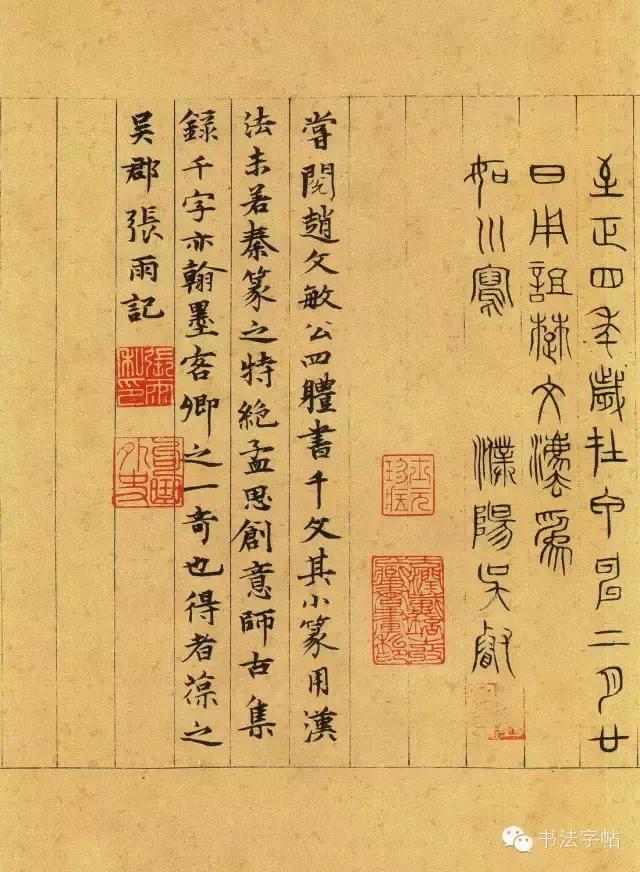 至正四年歲在甲申二月廿
日用詛楚文灋為
如川寫 濮陽吳叡
嘗閱趙文敏公四體書千文其小篆用漢
法未若秦篆之特絶孟思創意師古集
錄千字亦翰墨客卿之一奇也得者葆之
吳郡張雨記
張雨私印
书法字帖